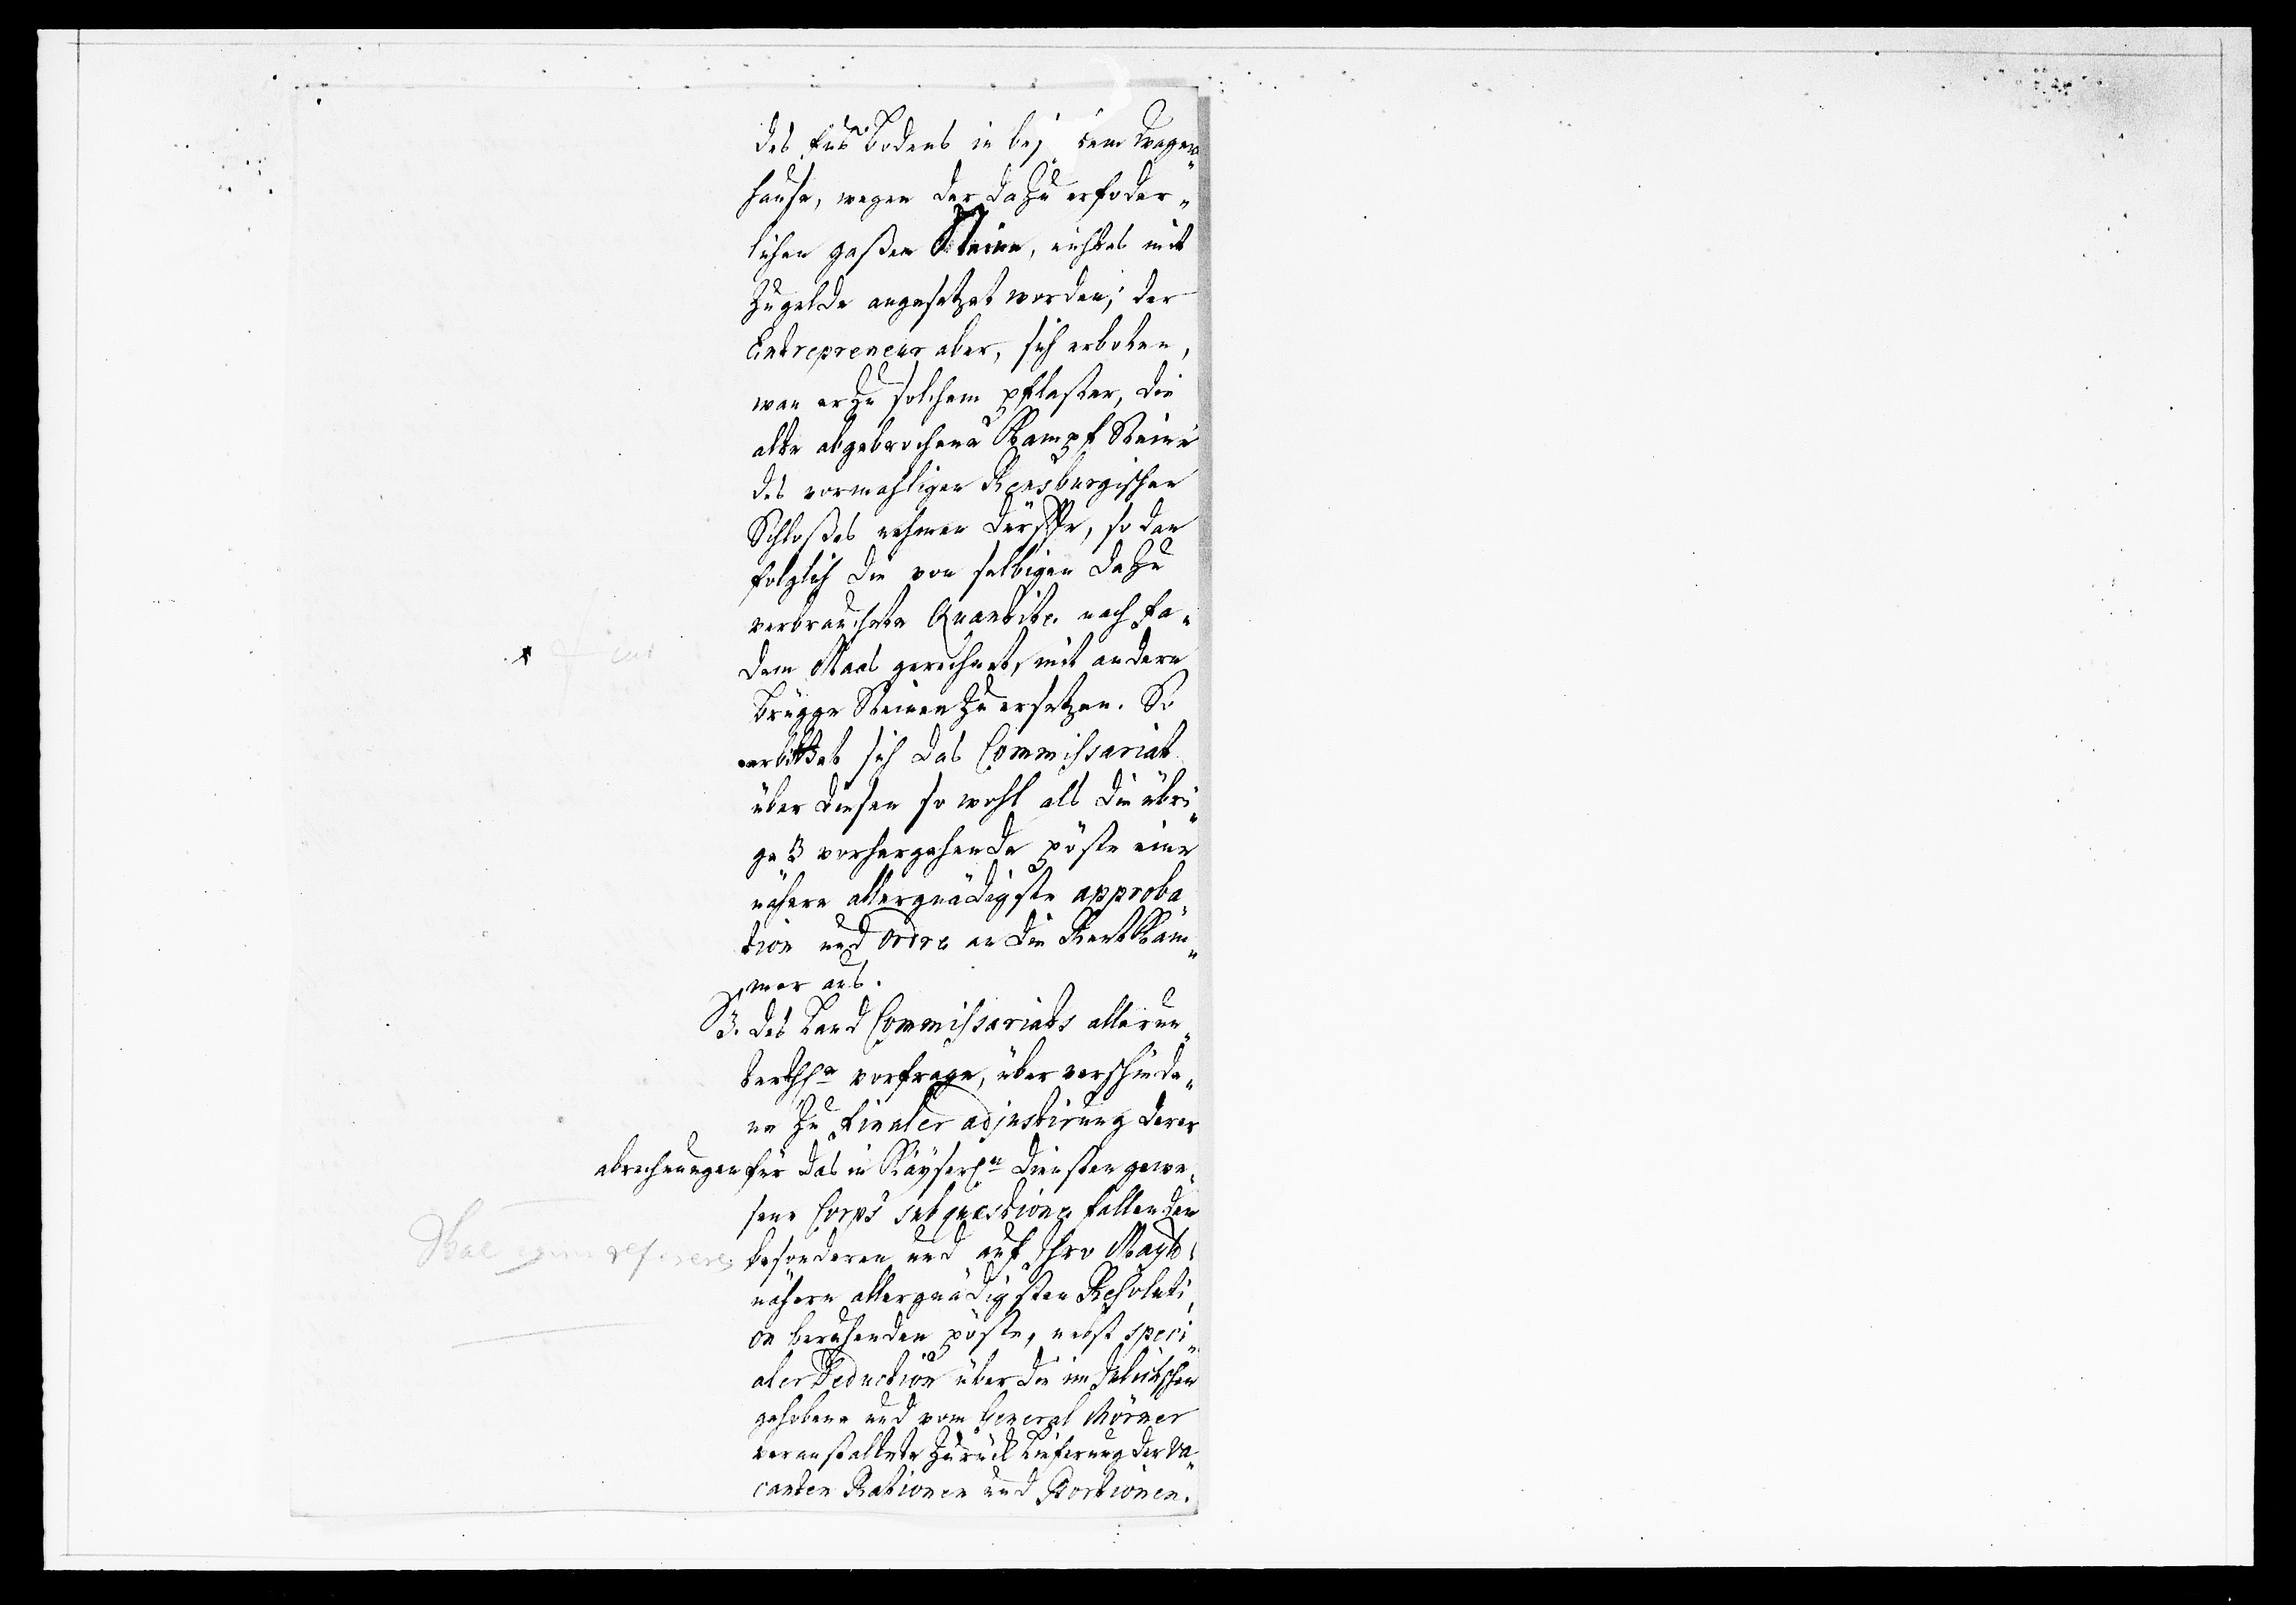 des Fus Bodens in be  dem Wagen
hause, wegen der dazu erfoder„
lichen  Steine, nichtes mit
Zugelde angesetzet worden; der
Entrepreneur aber, sich erboten,
wan er zu solchem pflaster, die
alte abgebrochene Kampf Steine
des vormahligen Rensburgischen
Schloßes nehmen dürffte, so dan
folglich die von selbigen dazu
verbrauchete Quantite nach Fa„
dem Maas gerechnet, mit andern
Brügge Steinen zu ersetzen. So
erbittet sich das Commissariat
über diesen so wohl als die übri„
ge 3 vorhergehende pöste eine
nähere allergnädigste approba„
tion und Ordre an die Rent Kam„
mer aus.
3. Des Land Commissariats allerun„
terthste vorfrage, über verschiede„
ne zu finaler adjustirung derer
abrechnungen für das in Käyserln Diensten gewe„
sene Corps sub quæstione fallenden
besonderen und auf Ihro Maytt
nähern allergnädigsten Resoluti„
on beruhenden pöste, nebst speci„
aler Deduction über die im
gehobene und vom General Mörner
veranstaltete Zurück Lieferung der va„
canten Rationen und Portionen.